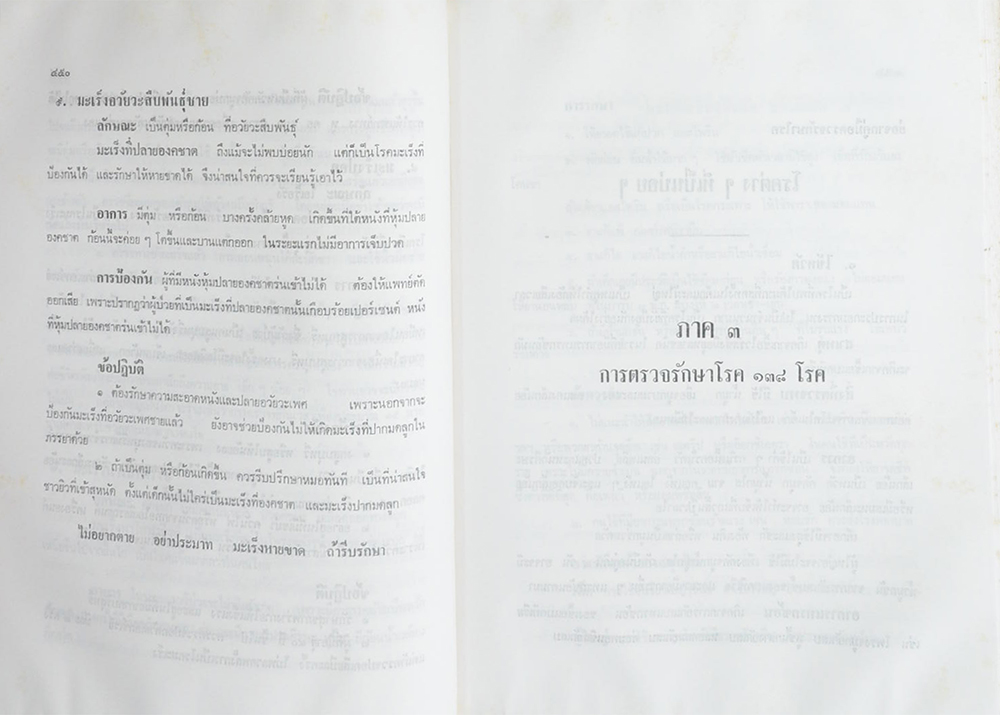 ๔๕๐
๙. มะเร็งอวัยวะสืบพันธุ์ชาย
ลักษณะ เป็นตุ่มหรือก้อน ที่อวัยวะสืบพันธุ์
มะเร็งที่ปลายองคชาต ถึงแม้จะไม่พบบ่อยนัก แต่ก็เป็นโรคมะเร็งที่
ป้องกันได้ และรักษาให้หายขาดได้ จึงน่าสนใจที่ควรจะเรียนรู้เอาไว้
อาการ มีตุ่ม หรือก้อน บางครั้งคล้ายหูด เกิดขึ้นที่ใต้หนังที่หุ้มปลาย
องคชาต ก้อนนี้จะค่อย ๆ โตขึ้นและบานแตกออก ในระยะแรกไม่มีอาการเจ็บปวด
การป้องกัน ผู้ที่มีหนังหุ้มปลายองคชาตร่นเข้าไม่ได้ ต้องให้แพทย์ตัด
ออกเสีย เพราะปรากฏว่าผู้ป่วยที่เป็นมะเร็งที่ปลายองคชาตนั้นเกือบร้อยเปอร์เซนต์ หนัง
ที่หุ้มปลายองคชาตร่นเข้าไม่ได้
ข้อปฏิบัติ
๑ ต้องรักษาความสะอาดหนังและปลายอวัยวะเพศ เพราะนอกจากจะ
ป้องกันมะเร็งที่อวัยวะเพศชายแล้ว ยังอาจช่วยป้องกันไม่ให้เกิดมะเร็งที่ปากมดลูกใน
ภรรยาด้วย
๒ ถ้าเป็นตุ่ม หรือก้อนเกิดขึ้น ควรรีบปรึกษาหมอทันที เป็นที่น่าสนใจ
ชาวยิวที่เข้าสุหนัต ตั้งแต่เด็กนั้นไม่ใคร่เป็นมะเร็งที่องคชาต และมะเร็งปากมดลูก
ไม่อยากตาย อย่าประมาท มะเร็งหายขาด ถ้ารีบรักษา
ภาค ๓
การตรวจรักษาโรค ๑๓๘ โรค